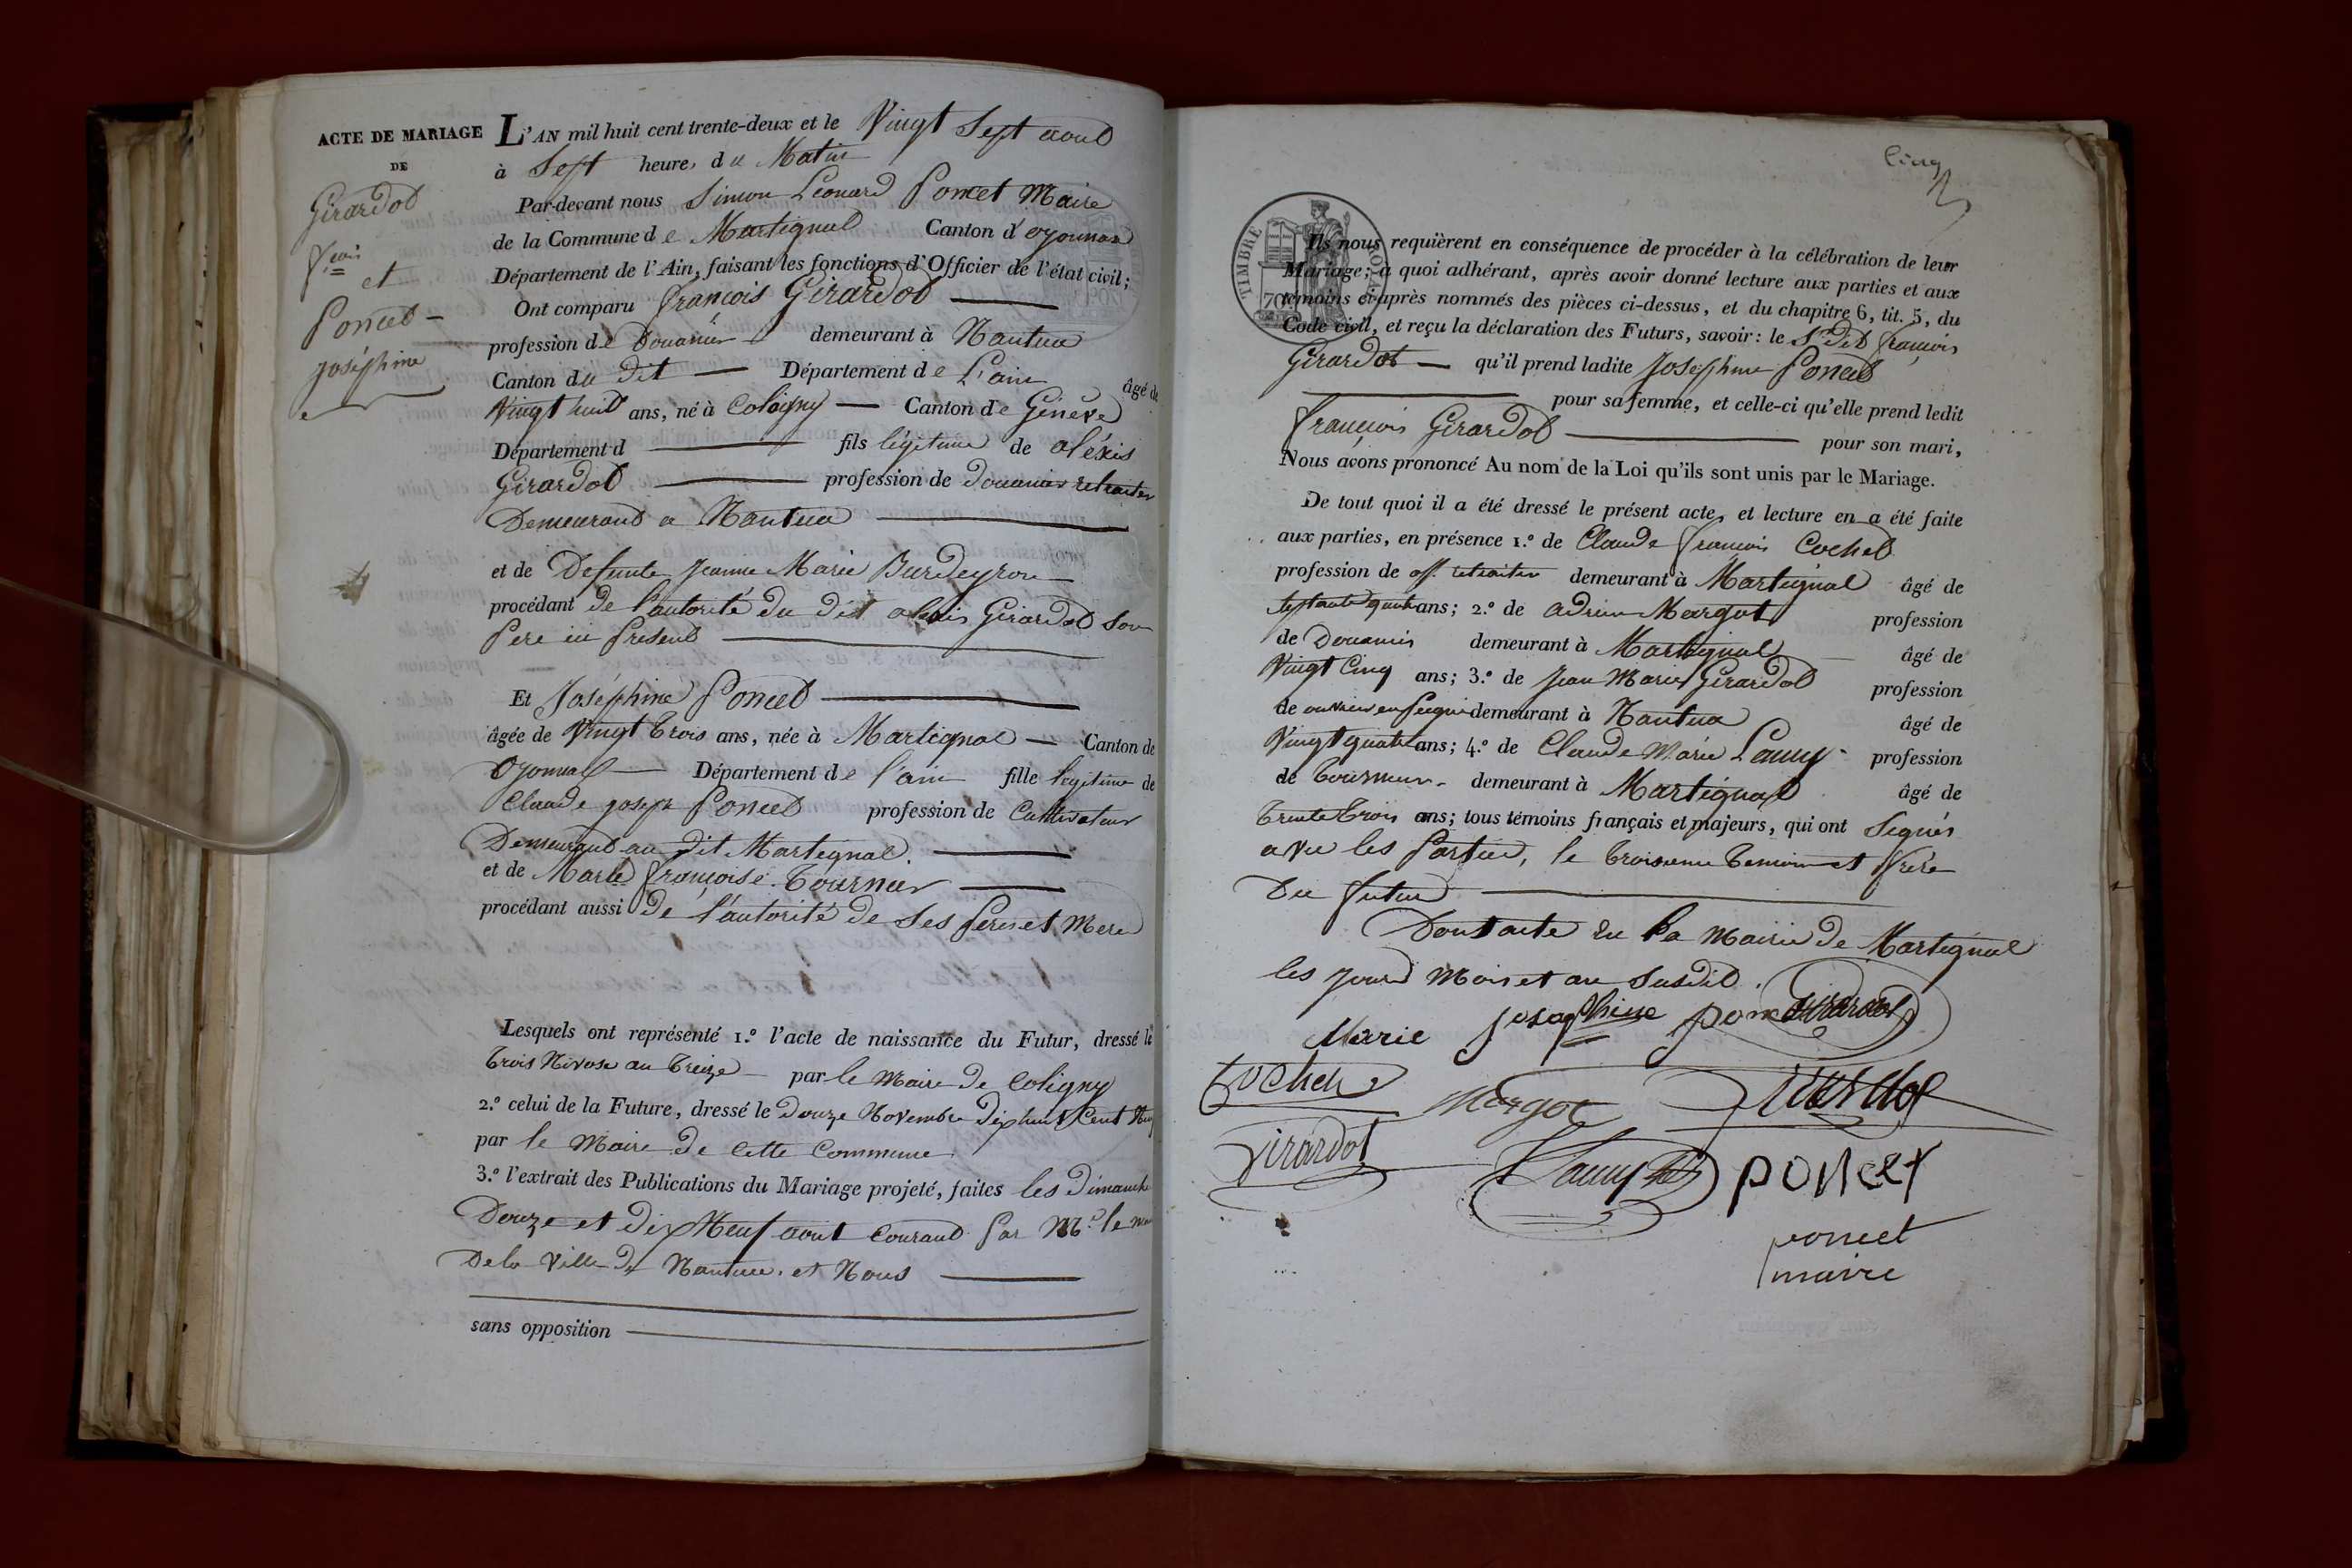 ACTE DE MARIAGE
DE
Girardot
f.cois
et
Poncet
Joséphine
L'AN mil huit cent trente-deux et le Vingt Sept aout
à Sept heures du Matin
Par-devant nous Simon Léonard Poncet Maire
de la Commune de Martignat Canton d'oyonnax
Département de l'Ain, faisant les fonctions d'Officier de l'état civil;
Ont comparu françois Girardot
profession de Douanier demeurant à Nantua
Canton du dit Département de L'ain âgé de
Vingt huit ans, né à Cologny Canton de Genève
Département d fils légitime de aléxis
Girardot profession de douanier retraiter
Demeurand a Nantua
et de Defunte Jeanne Marie Burdeyron
procédant de l'autorité du dit alexis Girardot Son
Pere ici Present
Et Joséphine Poncet
âgée de Vingt trois ans, née à Martignat Canton de
Oyonnax Département de l'ain fille legitime de
Claude joseph Poncet profession de Cultivateur
Demeurand au dit Martignat.
et de Marie françoise Tournier
procédant aussi de l'autorité de Ses Peres et Mere
Lesquels ont représenté 1.º l'acte de naissance du Futur, dressé le
trois Nivose an treize par le Maire de Coligny
2.º celui de la Future, dressé le douze Novembre dix huit Cent Neuf
par le Maire de Cette Commune
3.º l'extrait des Publications du Mariage projeté, faites les dimanche
Douze et dix Neuf aout Courand Par Mr le
De la Ville de Nantua et Nous
sans opposition
Cinq
TIMBRE ROYAL
70
Ils nous requièrent en conséquence de procéder à la célébration de leur
Mariage; à quoi adhérant, après avoir donné lecture aux parties et aux
témoins ci-après nommés des pièces ci-dessus, et du chapitre 6, tit. 5, du
Code civil, et reçu la déclaration des Futurs, savoir: le S. dit françois
Girardot qu'il prend ladite Josephine Poncet
pour sa femme, et celle-ci qu'elle prend ledit
françois Girardot pour son mari,
Nous avons prononcé Au nom de la Loi qu'ils sont unis par le Mariage.
De tout quoi il a été dressé le présent acte, et lecture en a été faite
aux parties, en présence 1.º de Claude françois Cochet
profession de off. retraiter demeurant à Martignat âgé de
septante quatre ans; 2.º de adrien Margot profession
de Douanier demeurant à Martignat âgé de
Vingt Cinq ans; 3.º de Jean Marie Girardot profession
de ouvrier en peigne demeurant à Nantua âgé de
Vingt quatre ans; 4.º de Claude Marie Lamy profession
de tourneur demeurant à Martignat âgé de
trente trois ans; tous témoins français et majeurs, qui ont Signés
avec les Parties, le troisieme temoin est frere
Du futur
Dont acte en la Mairie de Martignat
les jours Mois et an Susdit.
Marie josephine poncet Girardot
Cochet Margot Girardot
Girardot Lamy poncet
poncet
maire